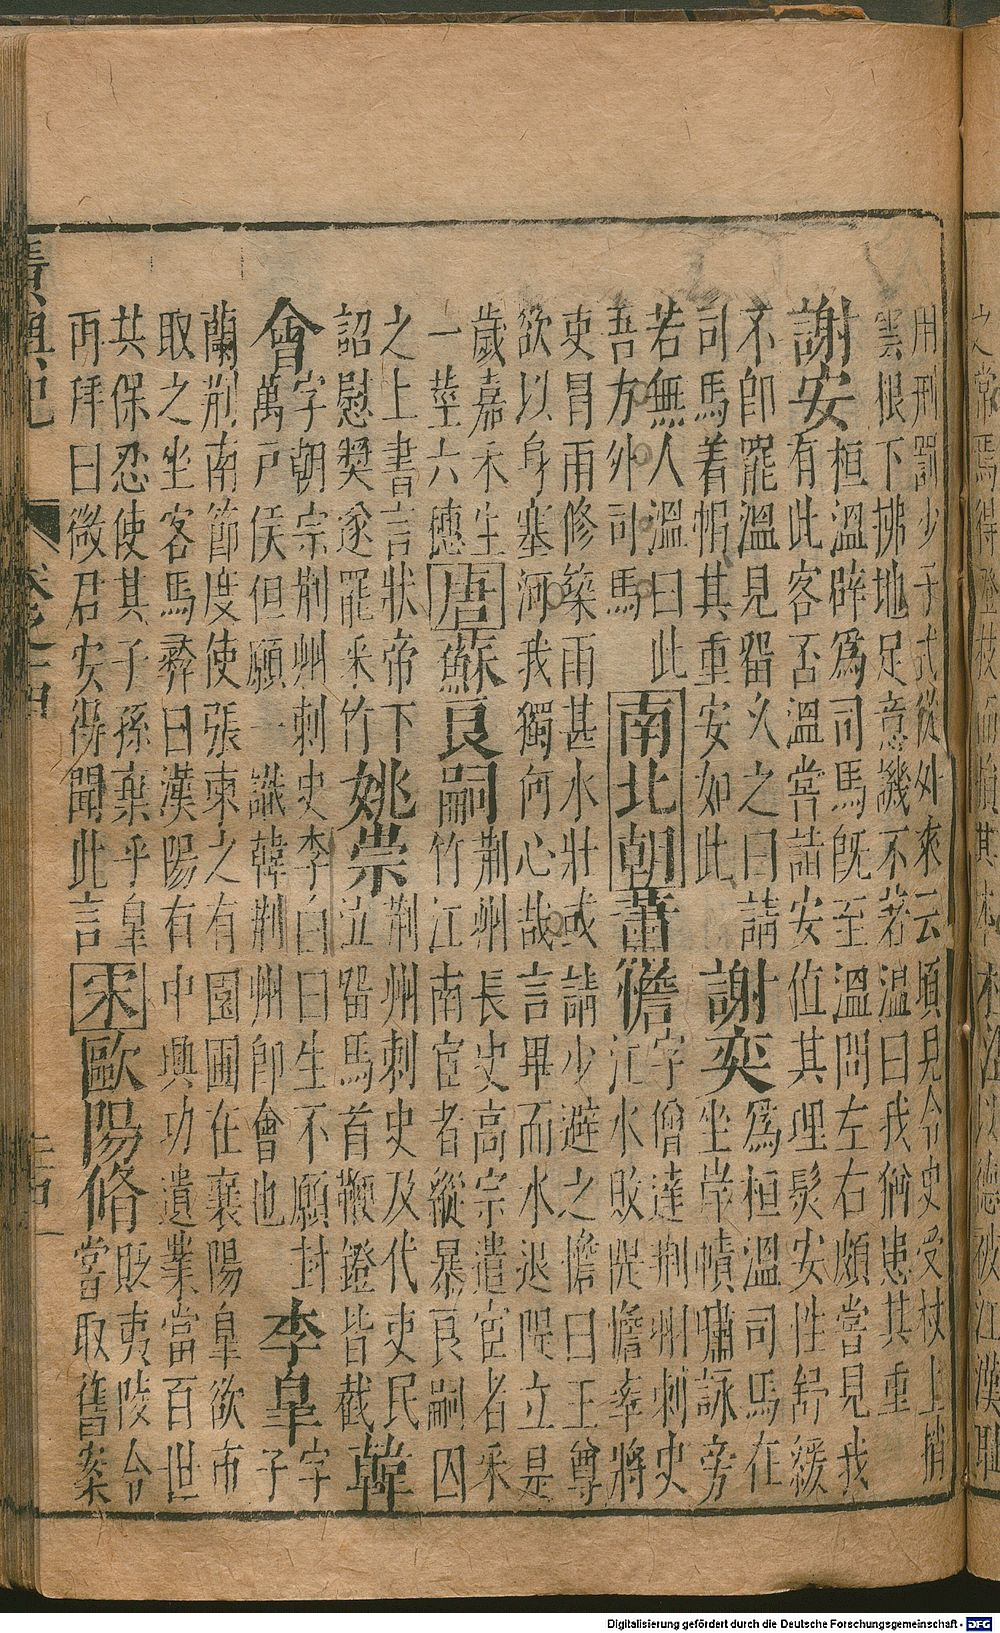 用刑罰少子式從外來云頃見令史受杖上捎
雲根下拂地足意譏不著溫曰我猶患其重
謝安
桓溫辟爲司馬既至溫問左右頗嘗見我
有此客否溫嘗詣安值其理髮安性舒緩
不即罷溫見留久之曰請
司馬着帽其重安如此
謝奕
爲桓溫司馬在
坐岸幘嘯詠旁
若無人溫曰此
吾方外司馬
南北朝
蕭憺
字僧達荆州刺史
江水敗隄憺率將
吏冒雨修築雨甚水壯或請少避之憺曰王尊
欲以身塞河我獨何心哉言畢而水退隄立是
歲嘉禾生
一莖六穗
唐
蘇良嗣
荆州長史高宗遣宦者采
竹江南宦者縱暴良嗣囚
之上書言狀帝下
詔慰奬遂罷采竹
姚崇
荆州刺史及代吏民
泣留馬首鞭鐙皆截
韓
會
字朝宗荆州刺史李白曰生不願封
萬戶侯但願一識韓荆州即會也
李皐
字
子
蘭荆南節度使張柬之有園圃在襄陽皐欲市
取之坐客馬彞曰漢陽有中興功遺業當百世
共保忍使其子孫棄乎皐
再拜曰微君安得聞此言
宋
歐陽脩
貶夷陵令
嘗取舊案
廣輿記
卷之十四
Digitalisierung gefördert durch die Deutsche Forschungsgemeinschaft - DFG